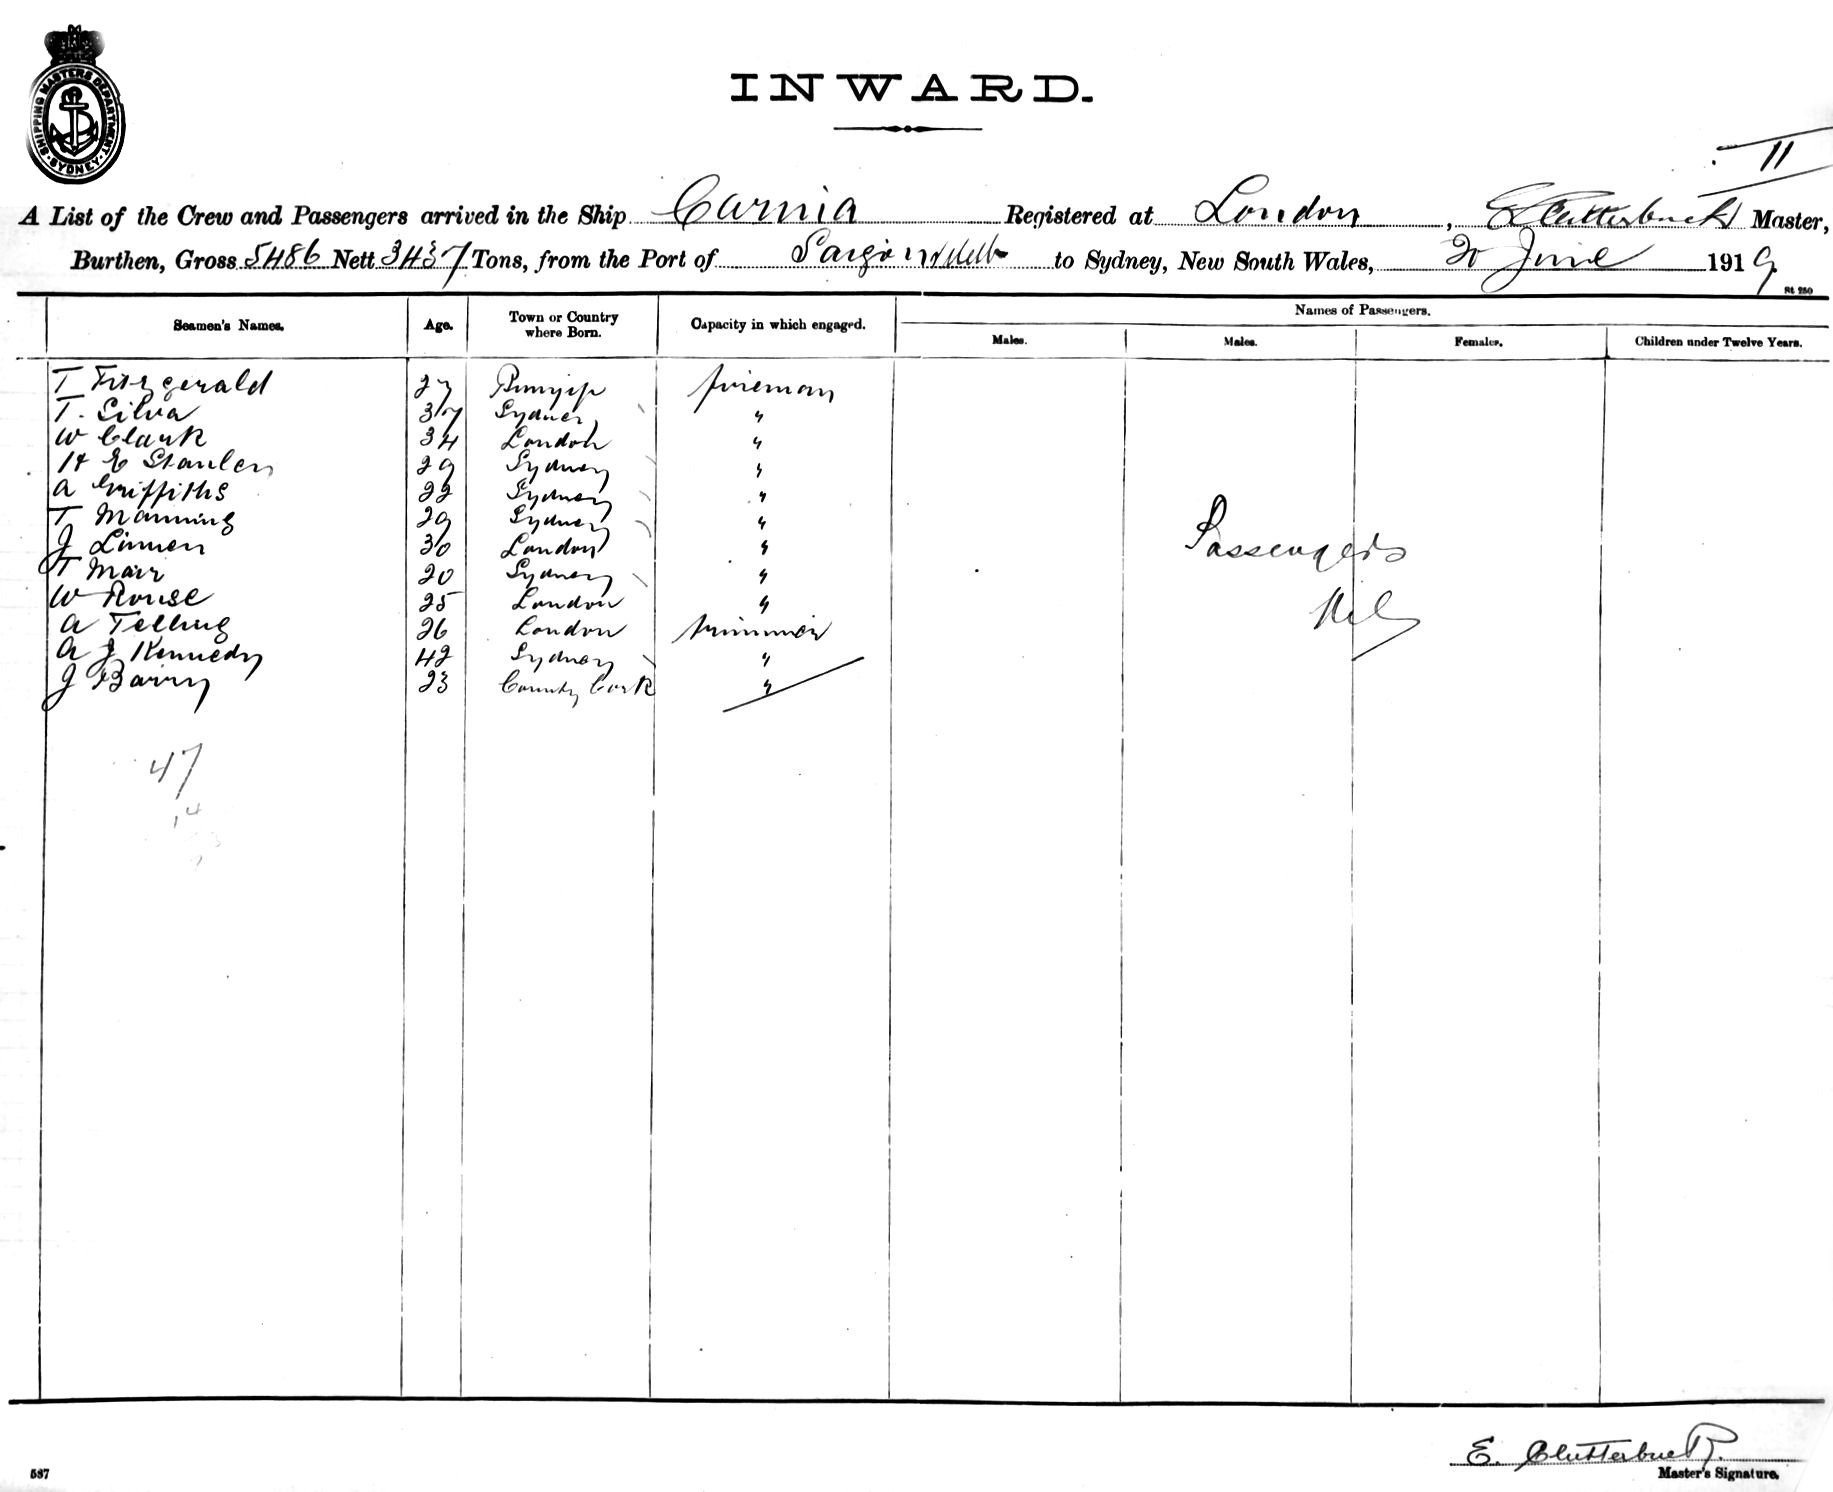 SHIPPING MASTERS DEPARTMENT. SYDNEY
INWARD.
II
A List of the Crew and Passengers arrived in the Ship Carnia Registered at London, E Clutterbuck Master,
Burthen, Gross 5486 Nett 3437 Tons, from the Port of to Sydney, New South Wales, 20 June 1919
St 250
Seamen's Names. Age. Town or Country where Born. Capacity in which engaged. Names of Passengers.
Males. Males. Females. Children under Twelve Years.
T Fitzgerald 27 Bunyip fireman
T. Silva 37 Sydney "
W Clark 34 London "
H E Stanley 29 Sydney "
A Griffiths 22 Sydney "
T Manning 29 Sydney "
J Linnen 30 London "
T Mair 20 Sydney "
W Rouse 25 London "
A Telling 26 London trimmer
A J Kennedy 42 Sydney "
J Barry 23 County Cork "
Passengers
Nil
47
14
E. Clutterbuck.
Master's Signature.
537